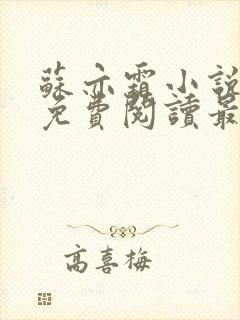 蘇亦霜小說
免費閱讀最
高喜梅